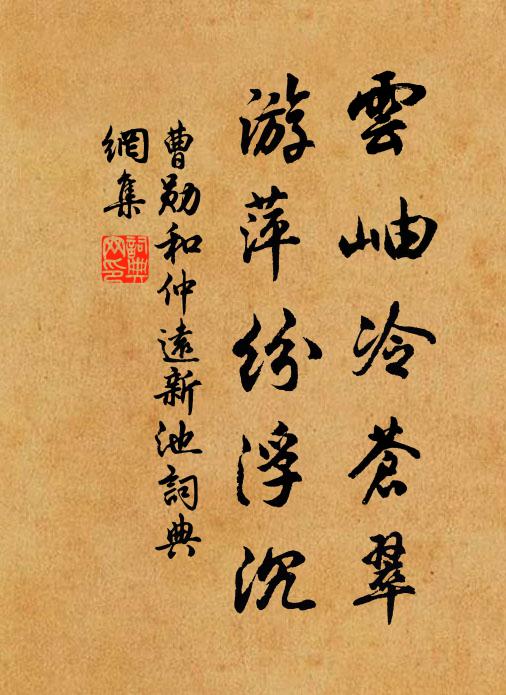 雲岫冷蒼翠
游萍紛浮沉
曹勛和仲遠新池詞典
網集
詞典
网印